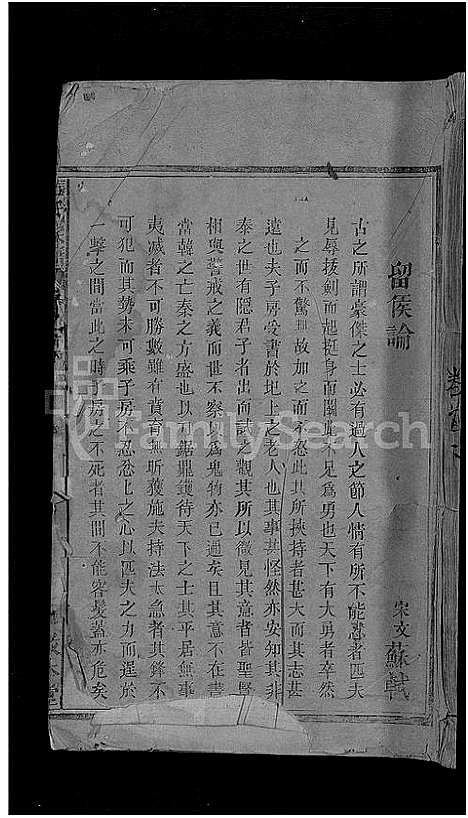 留侯論
宋文 蘇軾
古之所謂豪傑之士必有過人之節人情有所不能忍者匹夫
見辱拔劍而起挺身而鬭此不足爲勇也天下有大勇者卒然
之而不驚 故加之而不怒此其所挾持者甚大而其志甚
遠也夫子房受書於圯上之老人也其事甚怪然亦安知其非
秦之世有隱君子者出而試之觀其所以微見其意者皆聖賢
相與警戒之義而世不察以爲鬼物亦已過矣且其意不在書
當韓之亡秦之方盛也以刀鋸鼎鑊待天下之士其平居無事
夷滅者不可勝數雖有賁育無所獲施夫持法太急者其鋒不
可犯而其勢未可乘子房不忍忿忿之心以匹夫之力而逞於
一擊之間當此之時子房之不死者其間不能容髮蓋亦危矣
FamilySearch